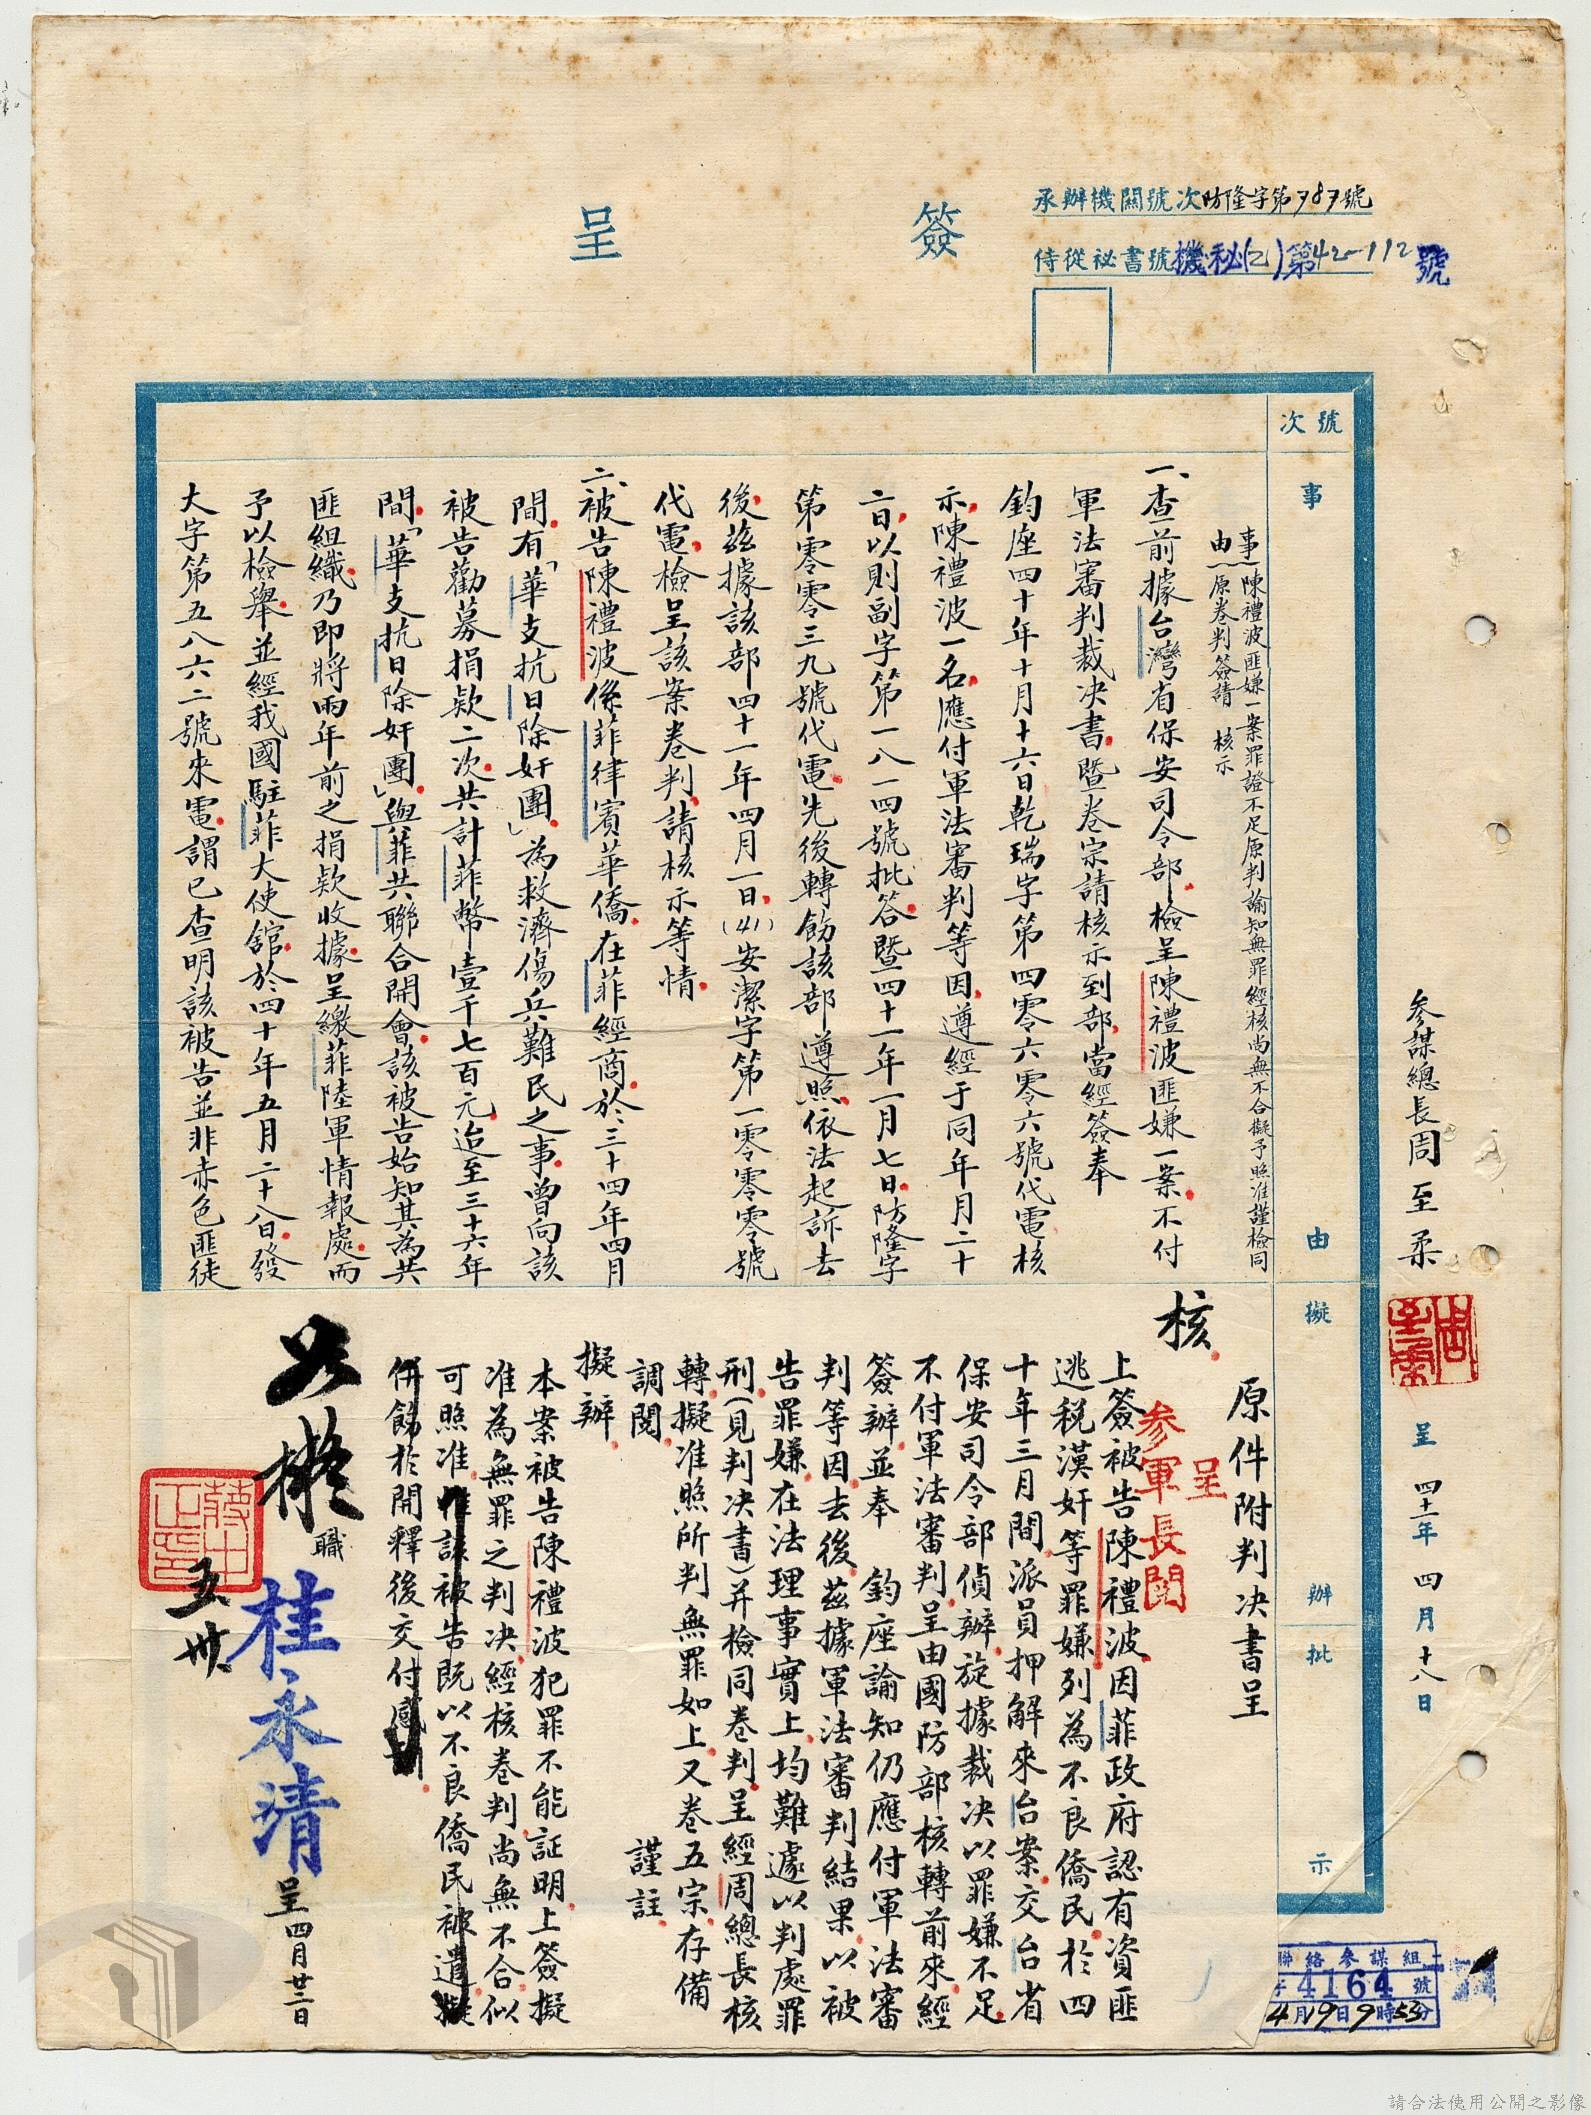 簽呈
承辦機關號次防隆字第787號
侍從祕書號機秘(乙)第42-112號
號次
事由
擬辦
批示
事由
陳禮波匪嫌一案罪證不足原判諭知無罪經核尚無不合擬予照准謹檢同
原卷判簽請 核示
一、查前據台灣省保安司令部檢呈陳禮波匪嫌一案不付
軍法審判裁決書暨卷宗請核示到部當經簽奉
鈞座四十年十月十六日乾瑞字第四零六零六號代電核
示陳禮波一名應付軍法審判等因遵經于同年月二十
二日以則副字第一八一四號批答暨四十一年一月七日防隆字
第零零三九號代電先後轉飭該部遵照依法起訴去
後茲據該部四十一年四月一日(41)安潔字第一零零零零號
代電檢呈該案卷判請核示等情
二、被告陳禮波係菲律賓華僑在菲經商於三十四年四月
間有「華支抗日除奸團」為救濟傷兵難民之事曾向該
被告勸募捐款二次共計菲幣壹千七百元迨至三十六年
間「華支抗日除奸團」與菲共聯合開會該被告始知其為共
匪組織乃即將兩年前之捐款收據呈繳菲陸軍情報處而
予以檢舉並經我國駐菲大使館於四十年五月二十八日發
大字第五八六二號來電謂已查明該被告並非赤色匪徒
參謀總長周至柔
周至柔
呈 四十一年四月十八日
原件附判決書呈
核
呈
參軍長閱
上簽被告陳禮波因菲政府認有資匪
逃稅漢奸等罪嫌列為不良僑民於四
十年三月間派員押解來台案交台省
保安司令部偵辦旋據裁決以罪嫌不足
不付軍法審判呈由國防部核轉前來經
簽辦並奉 鈞座諭知仍應付軍法審
判等因去後茲據軍法審判結果以被
告罪嫌在法理事實上均難遽以判處罪
刑(見判決書)并檢同卷判呈經周總長核
轉擬准照所判無罪如上又卷五宗存備
調閱 謹註
擬辦
本案被告陳禮波犯罪不能証明上簽擬
准為無罪之判決經核卷判尚無不合似
可照准惟該被告既以不良僑民被遣擬
併飭於開釋後交付感
如擬
五 卅
職 桂永清 呈 四月廿二日
聯絡參謀組
字4164號
4月19日9時53分
請合法使用公開之影像